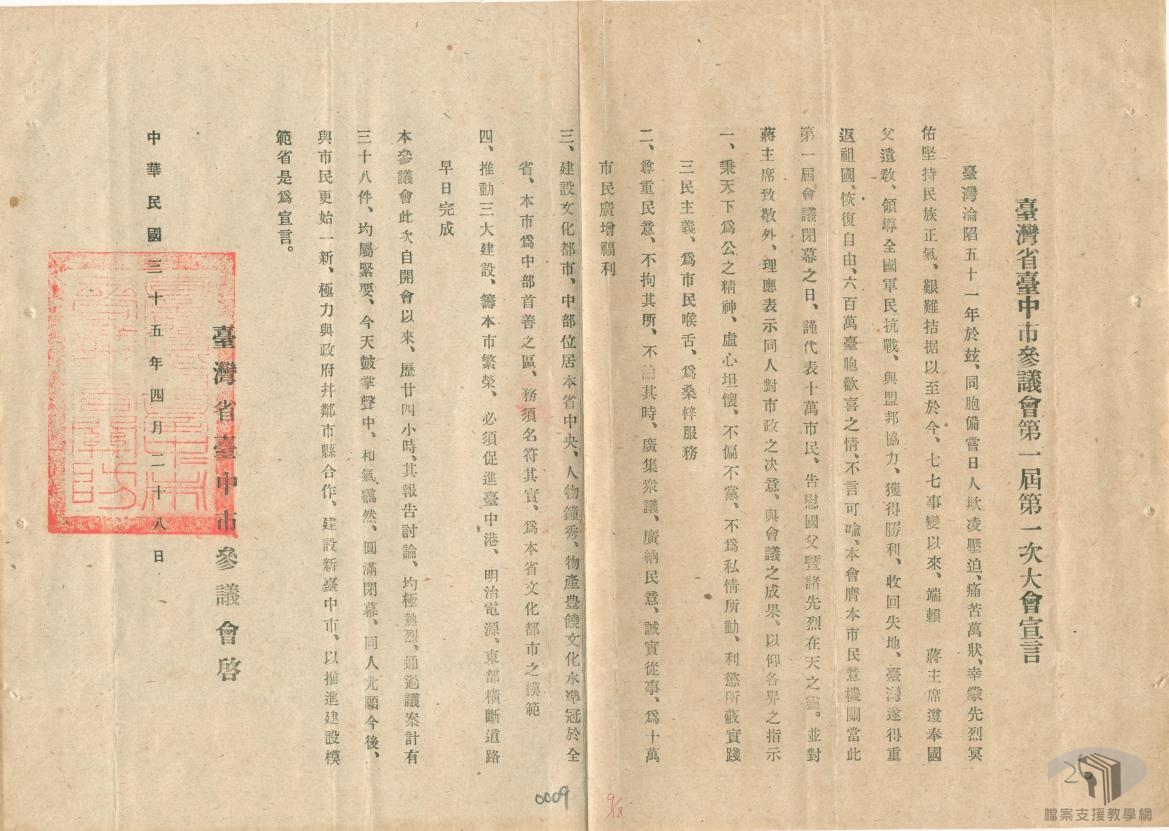 臺灣省臺中市參議會第一屆第一次大會宣言
臺灣淪陷五十一年於兹、同胞備嘗日人欺凌壓迫、痛苦萬狀、幸蒙先烈冥
佑堅持民族正氣、艱難拮据以至於今、七七事變以來、端賴 蔣主席遵奉國
父遺敎、領導全國軍民抗戰、與盟邦協力、獲得勝利、收回失地、臺灣遂得重
返祖國、恢復自由、六百萬臺胞歡喜之情、不言可喩、本會膺本市民意機關當此
第一屆會議閉幕之日、謹代表十萬市民、告慰國父暨諸先烈在天之靈。並對
蔣主席致敬外、理應表示同人對市政之决意、與會議之成果、以仰各界之指示
一、秉天下爲公之精神、虛心坦懷、不偏不黨、不爲私情所動、利慾所蔽實踐
三民主義、爲市民喉舌、爲桑梓服務
二、尊重民意、不拘其所、不論其時、廣集衆議、廣納民意、誠實從事、爲十萬
市民廣增福利
三、建設文化都市、中部位居本省中央、人物鐘秀、物產豊饒文化水準冠於全
省、本市爲中部首善之區、務須名符其實、爲本省文化都市之模範
四、推動三大建設、籌本市繁榮、必須促進臺中港、明治電源、東部橫斷道路
早日完成
本參議會此次自開會以來、歷廿四小時、其報告討論、均極熱烈、通過議案計有
三十八件、均屬緊要、今天鼓掌聲中、和氣靄然、圓滿閉幕、同人尤願今後、
與市民更始一新、極力與政府幷鄰市縣合作、建設新臺中市、以推進建設模
範省是爲宣言。
臺灣省臺中市參議會啓
中華民國三十五年四月二十八日
0009
9/18
檔案支援教學網